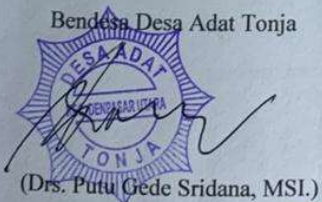 Bendesa Desa Adat Tonja
DESA ADAT
DENPASAR UTARA
TONJA
(Drs. Putu Gede Sridana, MSI.)